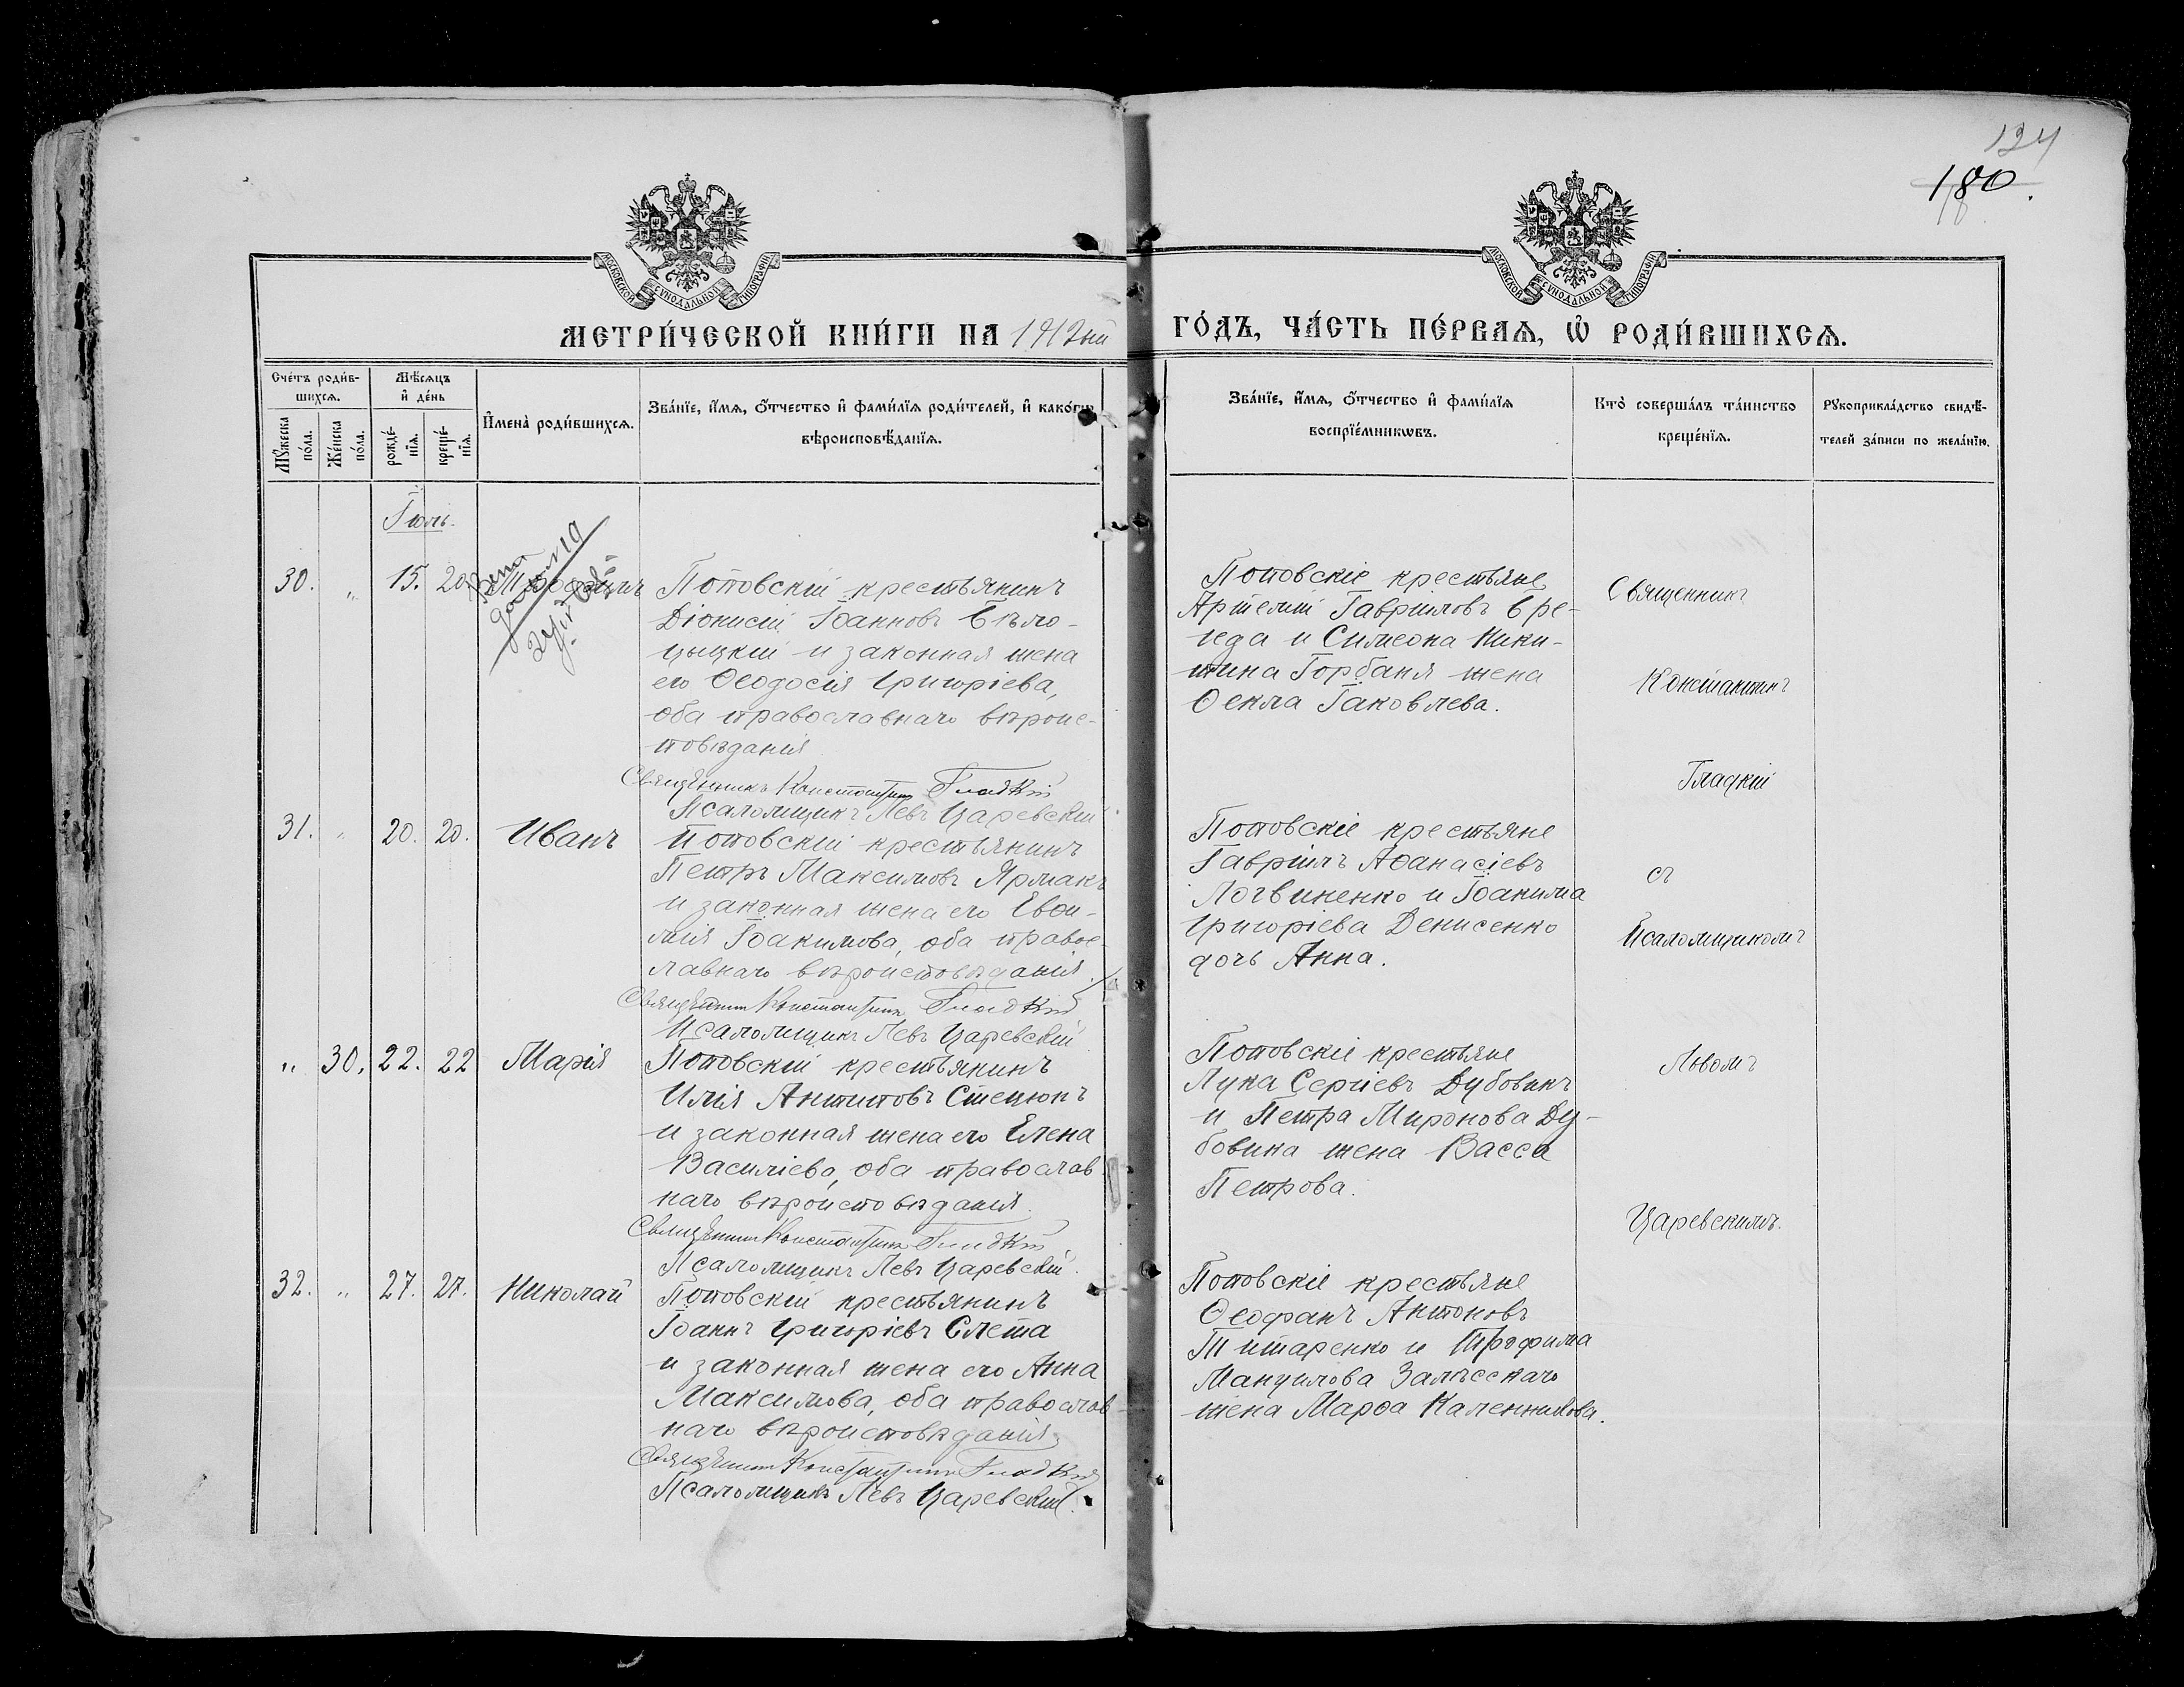 124
180.
МОСКОВСКОЙ СѴНОДАЛЬНОЙ ТИПОГРАФІИ
МОСКОВСКОЙ СѴНОДАЛЬНОЙ ТИПОГРАФІИ
МЕТРИ́ЧЕСКОЙ КНИ́ГИ НА 1912ый ГО́ДЪ, ЧА́СТЬ ПЕ́РВАѦ, Ѡ҆ РОДИ́ВШИХСѦ.
Сче́тъ роди́в-
шихсѧ.
Мѣ́сѧцъ
и҆ де́нь
И҆мена̀ роди́вшихсѧ.
Зва́нїе, и҆́мѧ, ѻ҆́тчество и҆ фами́лїѧ роди́телей, и҆ како́гѡ
вѣроисповѣ́данїѧ.
Зва́нїе, и҆́мѧ, ѻ҆́тчество и҆ фами́лїѧ
воспрїе́мникѡвъ.
Кто̀ соверша́лъ та́инство
креще́нїѧ.
Рꙋкоприкла́дство свидѣ́-
телей за́писи по жела́нїю.
Мꙋ́жеска
по́ла.
Же́нска
по́ла.
рожде́-
нїѧ.
креще́-
нїѧ.
Іюль.
30. „ 15. 20.
Поповскій крестьянинъ
Діонисій Іоанновъ Бѣло-
цыцкій и законная жена
его Ѳеодосія Григоріева,
оба православнаго вѣроис-
повѣданія
Священникъ Константинъ Гладкій
Псаломщикъ Левъ Царевскій
Поповскіе крестьяне
Артемій Гавріиловъ Бре-
геда и Симеона Ники-
тина Горбаня жена
Ѳекла Іаковлева.
31. „ 20. 20. Иванъ
Поповскій крестьянинъ
Петръ Максимовъ Ярмакъ
и законная жена его Евѳи-
мія Іоакимова, оба правос-
лавнаго вѣроисповѣданія.
Священникъ Константинъ Гладкій
Псаломщикъ Левъ Царевскій
Поповскіе крестьяне
Гавріилъ Аѳанасіевъ
Логвиненко и Іоакима
Григоріева Денисенко
дочь Анна.
„ 30. 22. 22 Марія
Поповскій крестьянинъ
Илія Антиповъ Стецюкъ
и законная жена его Елена
Василіева, оба православ-
наго вѣроисповѣданія.
Священникъ Константинъ Гладкій
Псаломщикъ Левъ Царевскій.
Поповскіе крестьяне
Лука Сергіевъ Дубовикъ
и Петра Миронова Ду-
бовика жена Васса
Петрова.
32. „ 27. 27. Николай
Поповскій крестьянинъ
Іоаннъ Григоріевъ Слета
и законная жена его Анна
Максимова, оба православ-
наго вѣроисповѣданія.
Священникъ Константинъ Гладкій
Псаломщикъ Левъ Царевскій.
Поповскіе крестьяне
Ѳеофанъ Антоновъ
Титаренко и Трофима
Мануилова Залѣсскаго
жена Марѳа Каленникова.
Священникъ
Константинъ
Гладкій
съ
Псаломщикомъ
Львомъ
Царевскимъ.